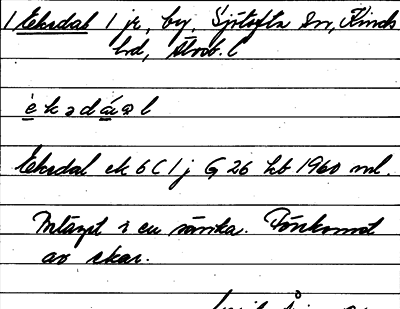 1 Eksdal 1 jr, by, Sjötofta sn, Kinds
hd, Älvsb. l
è k ə d á ə l
Eksdal ek 6 C 1 j G 26 hb 1960 ml.
Intaget i en sänka. Förekomst
av ekar.